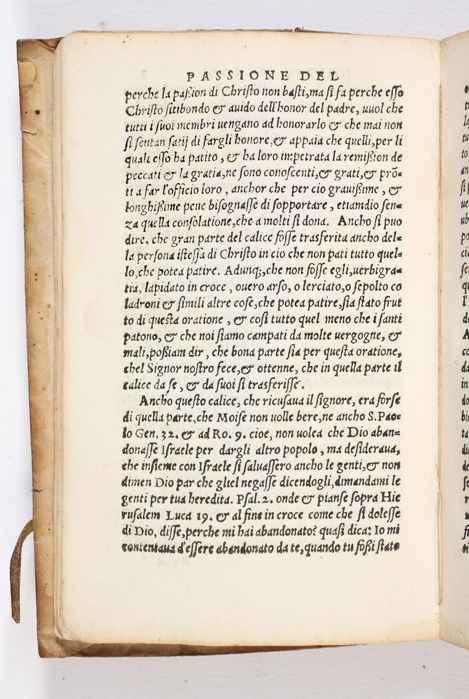 PASSIONE DEL
perche la paßion di Christo non basti, ma si fa perche esso
Christo sitibondo & auido dell'honor del padre, uuol che
tutti i suoi membri uengano ad honorarlo & che mai non
si sentan satij di fargli honore, & appaia che quelli, per li
quali esso ha patito, & ha loro impetrata la remißion de
peccati & la gratia, ne sono conoscenti, & grati, & prõ=
ti a far l'officio loro, anchor che per cio grauißime, &
longhißime pene bisognasse di sopportare, etiamdio sen=
za quella consolatione, che a molti si dona. Ancho si puo
dire, che gran parte del calice fosse trasferita ancho del=
la persona istessa di Christo in cio che non pati tutto quel=
lo, che potea patire. Adunq;, che non fosse egli, uerbigra=
tia, lapidato in croce, ouero arso, o lerciato, o sepolto co
ladroni & simili altre cose, che potea patire, sia stato frut
to di questa oratione, & cosi tutto quel meno che i santi
patono, & che noi siamo campati da molte uergogne, &
mali, poßiam dir, che bona parte sia per questa oratione,
chel Signor nostro fece, & ottenne, che in quella parte il
calice da se, & da suoi si trasferisse.
Ancho questo calice, che ricusaua il signore, era forse
di quella parte, che Moise non uolle bere, ne ancho S. Pao=
lo Gen. 32. & ad Ro. 9. cioe, non uolea che Dio aban=
donasse Israele per dargli altro popolo, ma desideraua,
che insieme con Israele si saluassero ancho le genti, & non
dimen Dio par che gliel negasse dicendogli, dimandami le
genti per tua heredita. Psal. 2. onde & pianse sopra Hie
rusalem Luca 19. & al fine in croce come che si dolesse
di Dio, disse, perche mi hai abandonato? quasi dica: Io mi
contentaua d'essere abandonato da te, quando tu foßi stato